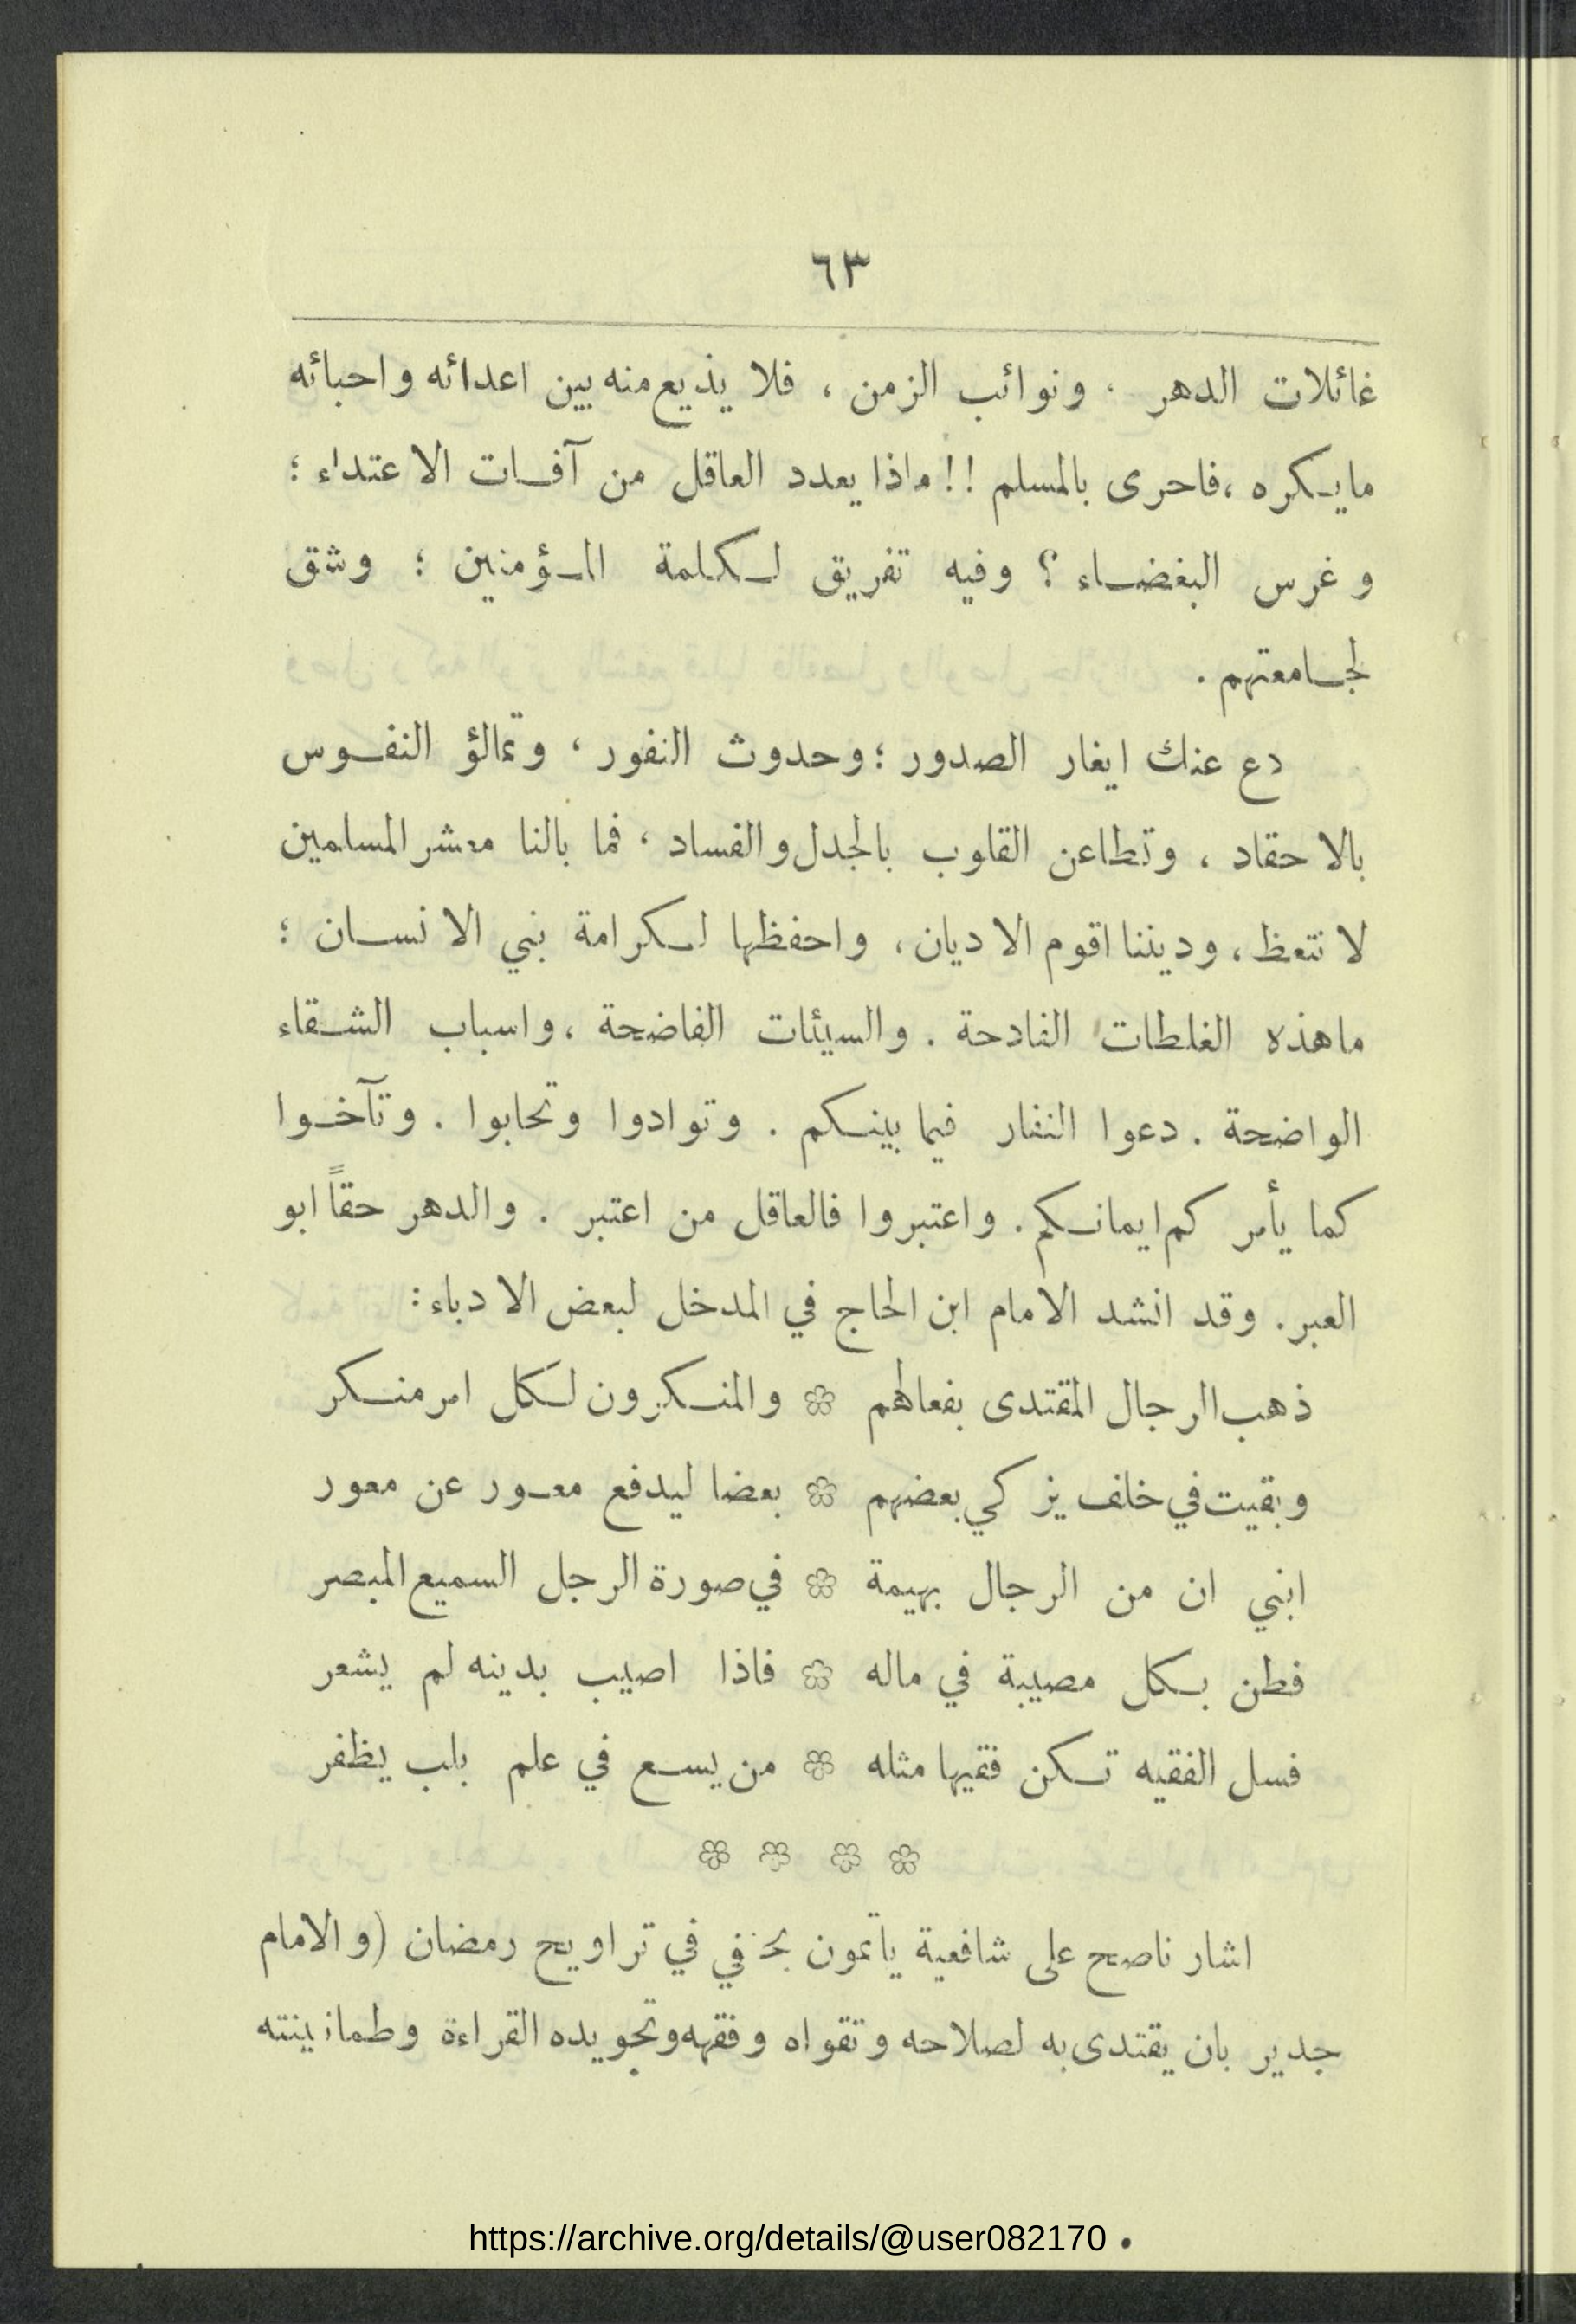 ٦٣
غائلات الدهر ، ونوائب الزمن ، فلا يذيع منه بين اعدائه واحبائه
ما يكره ، فاحرى بالمسلم !! ماذا يعدد العاقل من آفات الاعتداء ؛
وغرس البغضاء ؟ وفيه تفريق لكلمة المؤمنين ؛ وشق
لجامعتهم .
دع عنك ايغار الصدور ؛ وحدوث النفور ، وتمالؤ النفوس
بالاحقاد ، وتطاعن القلوب بالجدل والفساد ، فما بالنا معشر المسلمين
لا نتعظ ، وديننا اقوم الاديان ، واحفظها لكرامة بني الانسان ؛
ما هذه الغلطات الفادحة . والسيئات الفاضحة ، واسباب الشقاء
الواضحة . دعوا النفار فيما بينكم . وتوادوا وتحابوا . وتآخوا
كما يأمركم ايمانكم . واعتبروا فالعاقل من اعتبر . والدهر حقاً ابو
العبر . وقد انشد الامام ابن الحاج في المدخل لبعض الادباء :
ذهب الرجال المقتدى بفعالهم ❀ والمنكرون لكل امر منكر
وبقيت في خلف يزكي بعضهم ❀ بعضا ليدفع معور عن معور
ابني ان من الرجال بهيمة ❀ في صورة الرجل السميع المبصر
فطن بكل مصيبة في ماله ❀ فاذا اصيب بدينه لم يشعر
فسل الفقيه تكن فقيها مثله ❀ من يسع في علم بلب يظفر
❀ ❀ ❀ ❀
اشار ناصح على شافعية ياتمون بحنفي في تراويح رمضان (والامام
جدير بان يقتدى به لصلاحه وتقواه وفقهه وتجويده القراءة وطمانينته
https://archive.org/details/@user082170